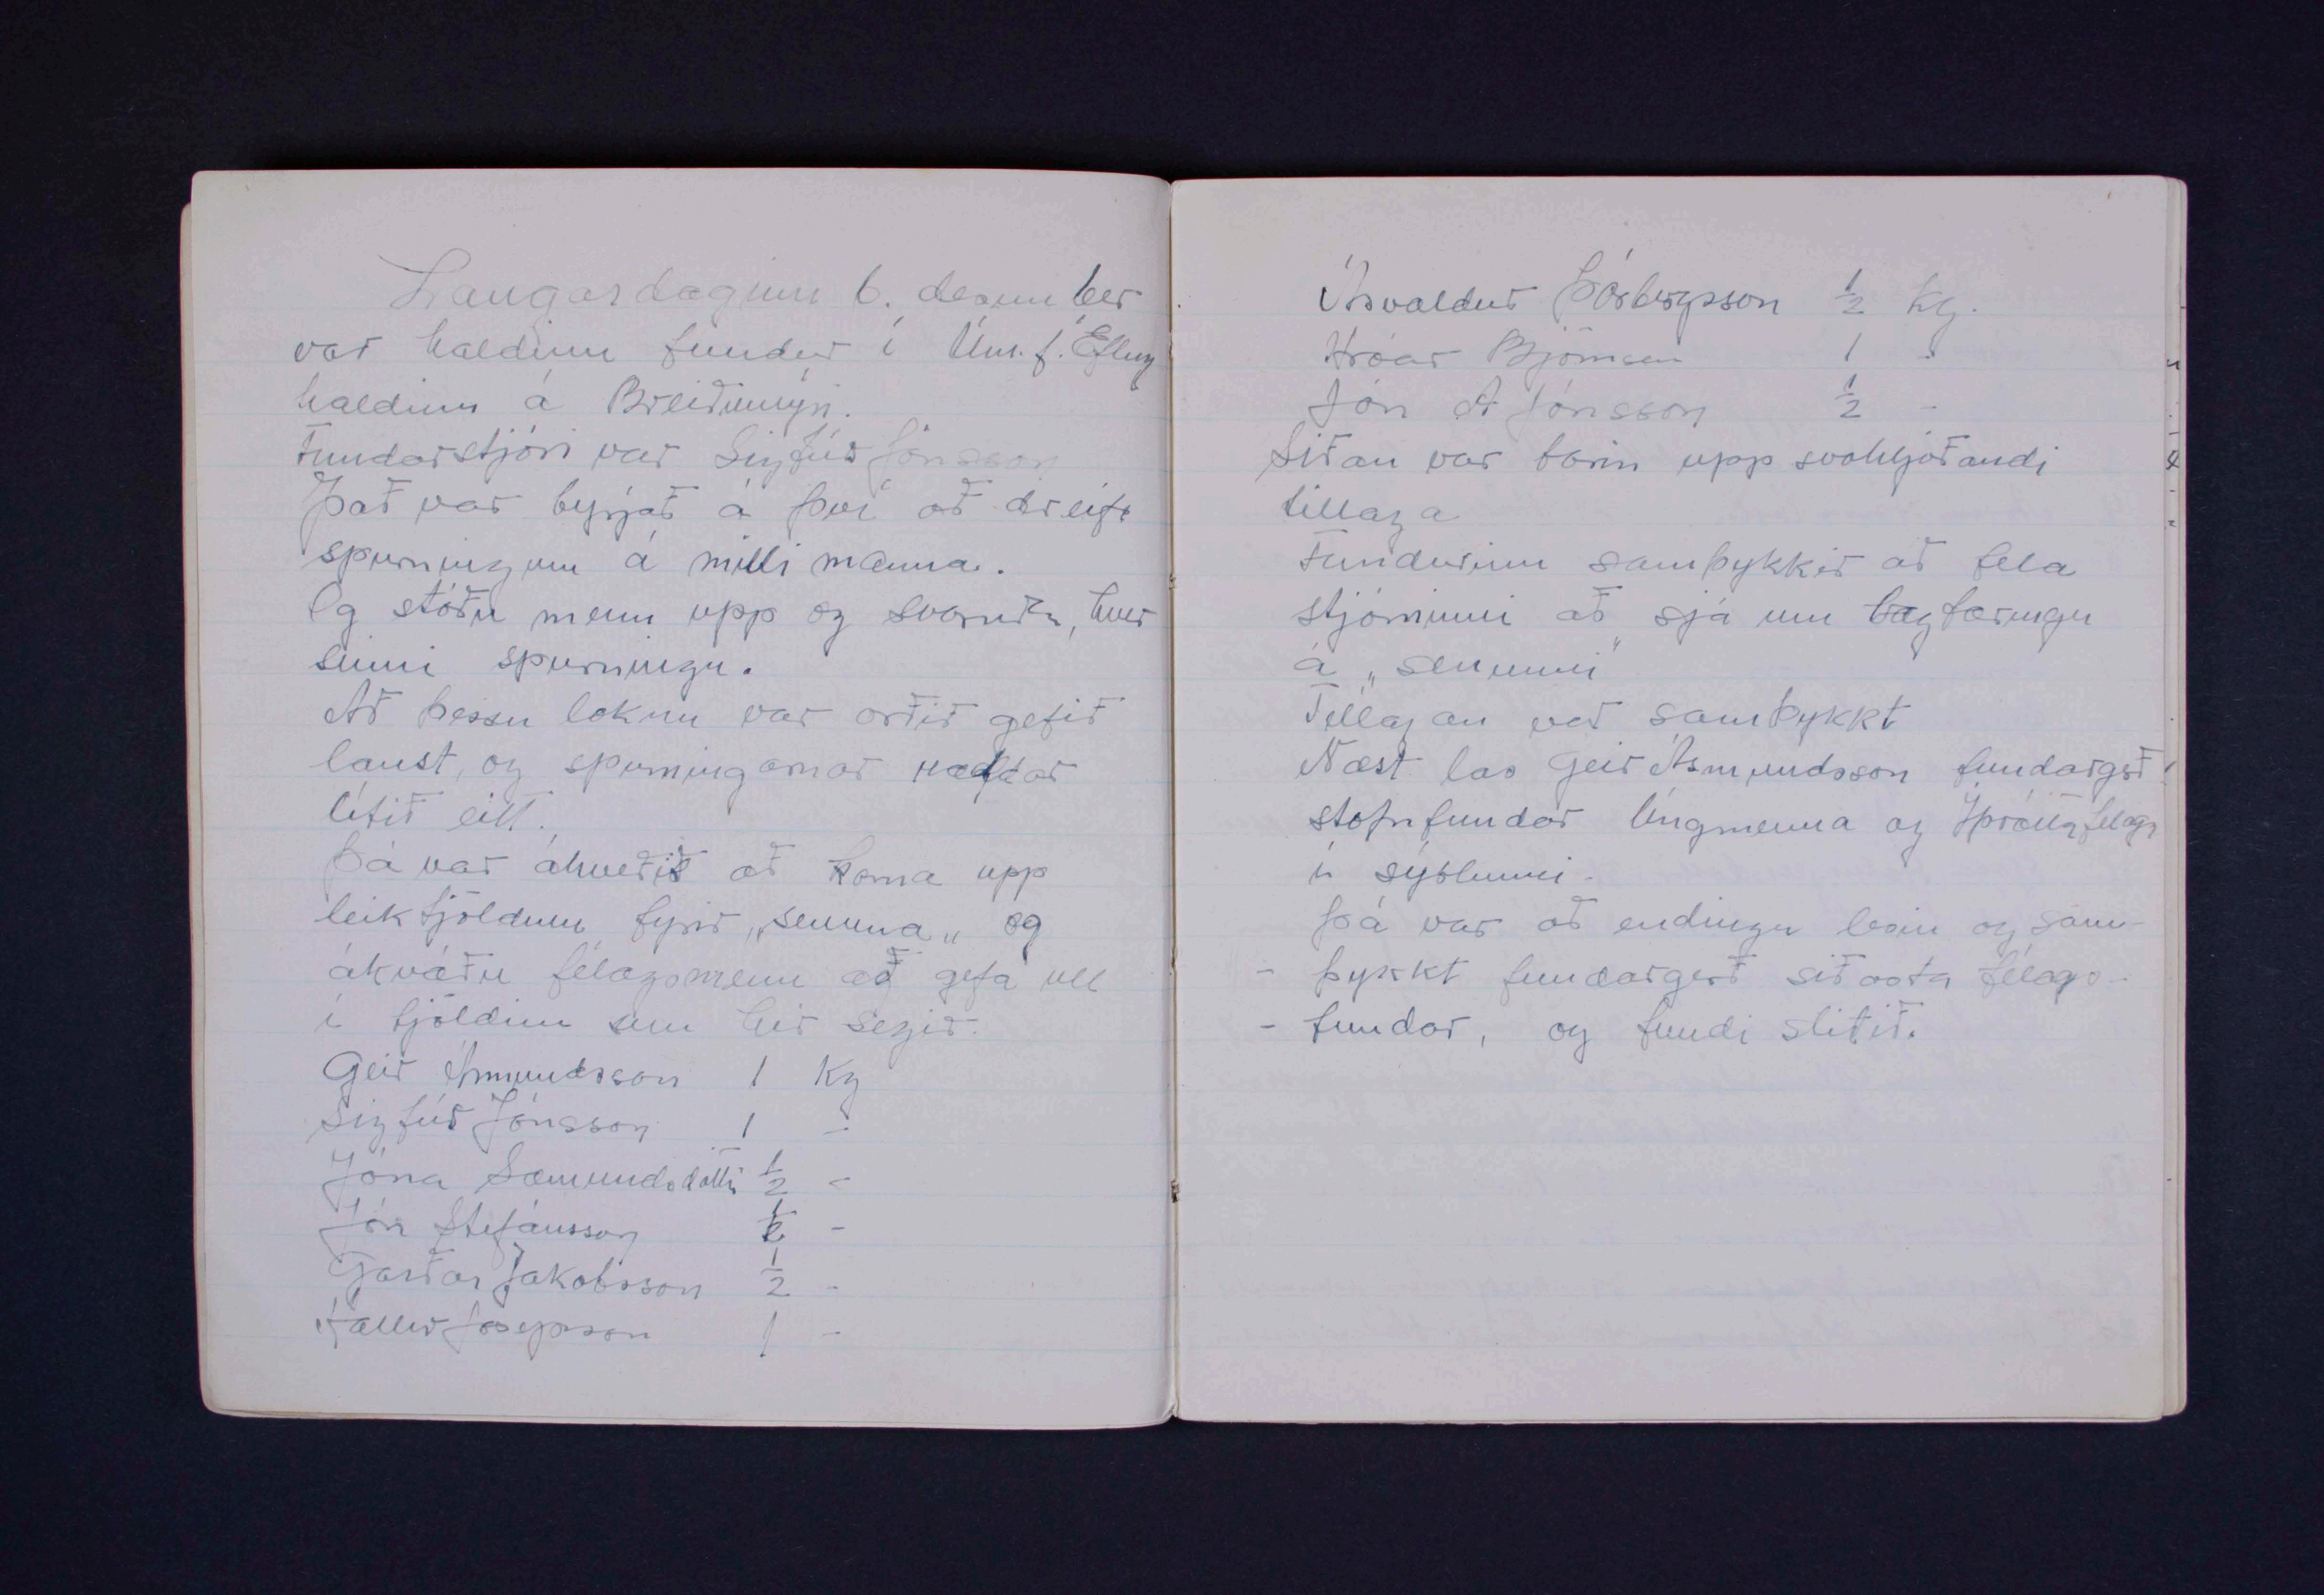 Laugardaginn 6. desember
var haldinn fundur í Um. f. Efling
haldinn á Breiðumýri.
Fundarstjóri var Sigfús Jónsson
Það var byrjað á því að dreifa
spurningum á milli manna.
Og stóðu menn upp og svöruðu, hver
sinni spurningu.
Að þessu loknu var orðið gefið
laust, og spurningarnar ræddar
lítið eitt.
Þá var ákveðið að koma upp
leiktjöldum fyrir „senuna„ og
ákváðu félagsmenn að gefa ull
í tjöldin sem hér segir.
Geir Ásmundsson 1 Kg
Sigfús Jónsson 1 -
Jóna Sæmundsdóttir ½ -
Jón Stefánsson ½ -
Garðar Jakobsson ½ -
Jósepsson 1 -
Úsvaldur Þórbergsson ½ kg.
Hróar Björnsson 1 -
Jón A Jónsson ½ -
Síðan var borin upp svohljóðandi
tillaga
Fundurinn samþykkir að fela
stjórninni að sjá um lagfæringu
á „senunni"
Tillagan var samþykkt
Næst las Geir Ásmundsson fundargerð
stofnfundar Ungmenna og Íþróttafélags
í sýslunni.
Þá var að endingu lesin og sam-
- þykkt fundargerð síðasta félags-
- fundar, og fundi slitið.